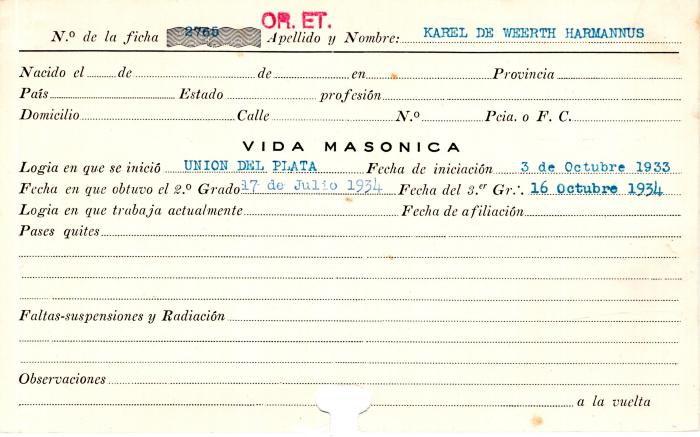 OR. ET.
N.º de la ficha 2765 Apellido y Nombre: KAREL DE WEERTH HARMANNUS
Nacido el de de en Provincia
País Estado profesión
Domicilio Calle N.º Pcia. o F. C.
VIDA MASONICA
Logia en que se inició UNION DEL PLATA Fecha de iniciación 3 de Octubre 1933
Fecha en que obtuvo el 2.º Grado 17 de Julio 1934 Fecha del 3.er Gr∴ 16 Octubre 1934
Logia en que trabaja actualmente Fecha de afiliación
Pases quites
Faltas-suspensiones y Radiación
Observaciones
a la vuelta